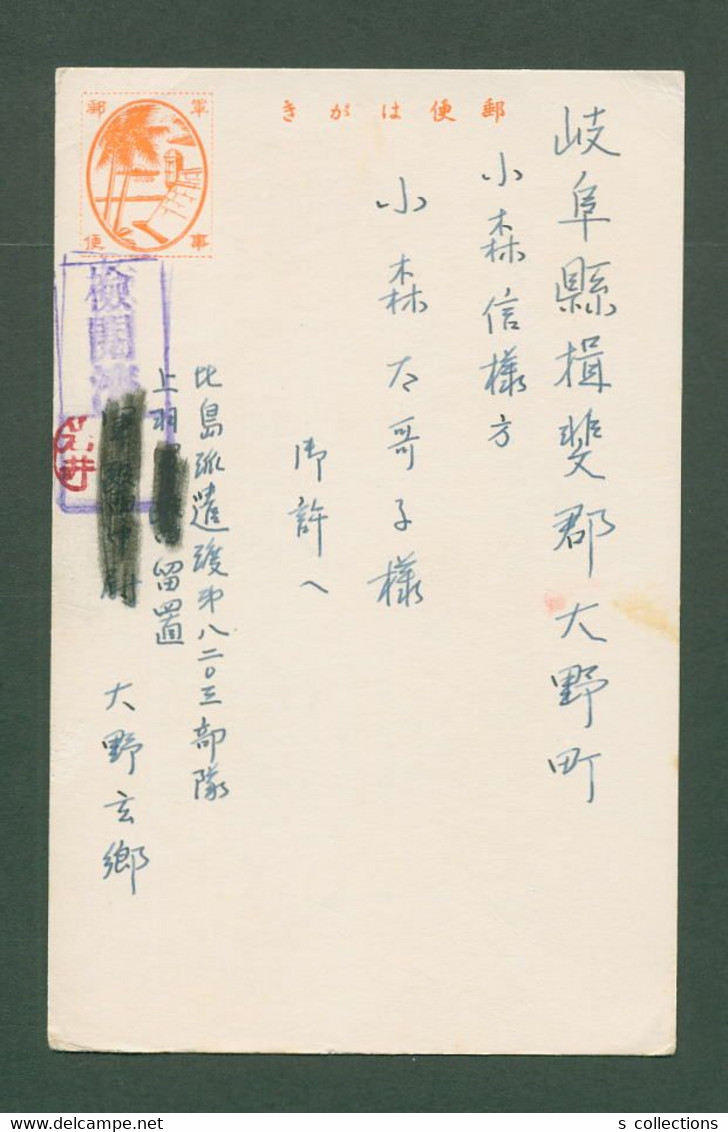 郵便はがき
軍事
郵便
岐阜縣揖斐郡大野町
小森信樣方
小森大哥子樣
御許へ
比島派遣渡第八二〇三部隊
上羽 留置
大野玄郷
檢閲濟
s collections